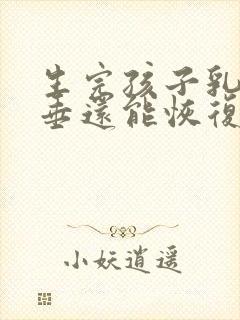 生完孩子乳
垂還能恢復
小妖逍遥